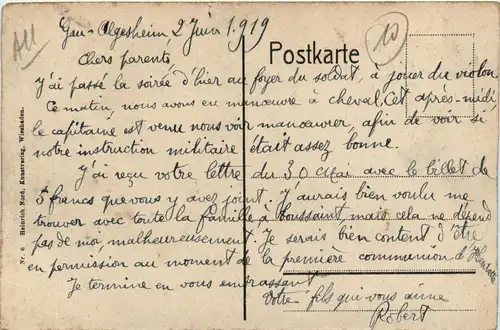 All
10
Gau-Algesheim, 2 Juin 1919
Postkarte
Chers parents,
J'ai passé la soirée d'hier au foyer du soldat, à jouer du violon
Ce matin, nous avons eu manœuvre à cheval. Cet après-midi
le capitaine est venu nous voir manœuvrer, afin de voir si
notre instruction militaire était assez bonne.
J'ai reçu votre lettre du 30 Mai avec le billet de
5 francs que vous y avez joint. J'aurais bien voulu me
trouver avec toute la famille à Toussaint mais cela ne dépend
pas de moi, malheureusement. Je serais bien content d'être
en permission au moment de la première communion d'
Je termine en vous embrassant
Votre fils qui vous aime
Robert
Nr. Heinrich Kunstverlag, Wiesbaden.